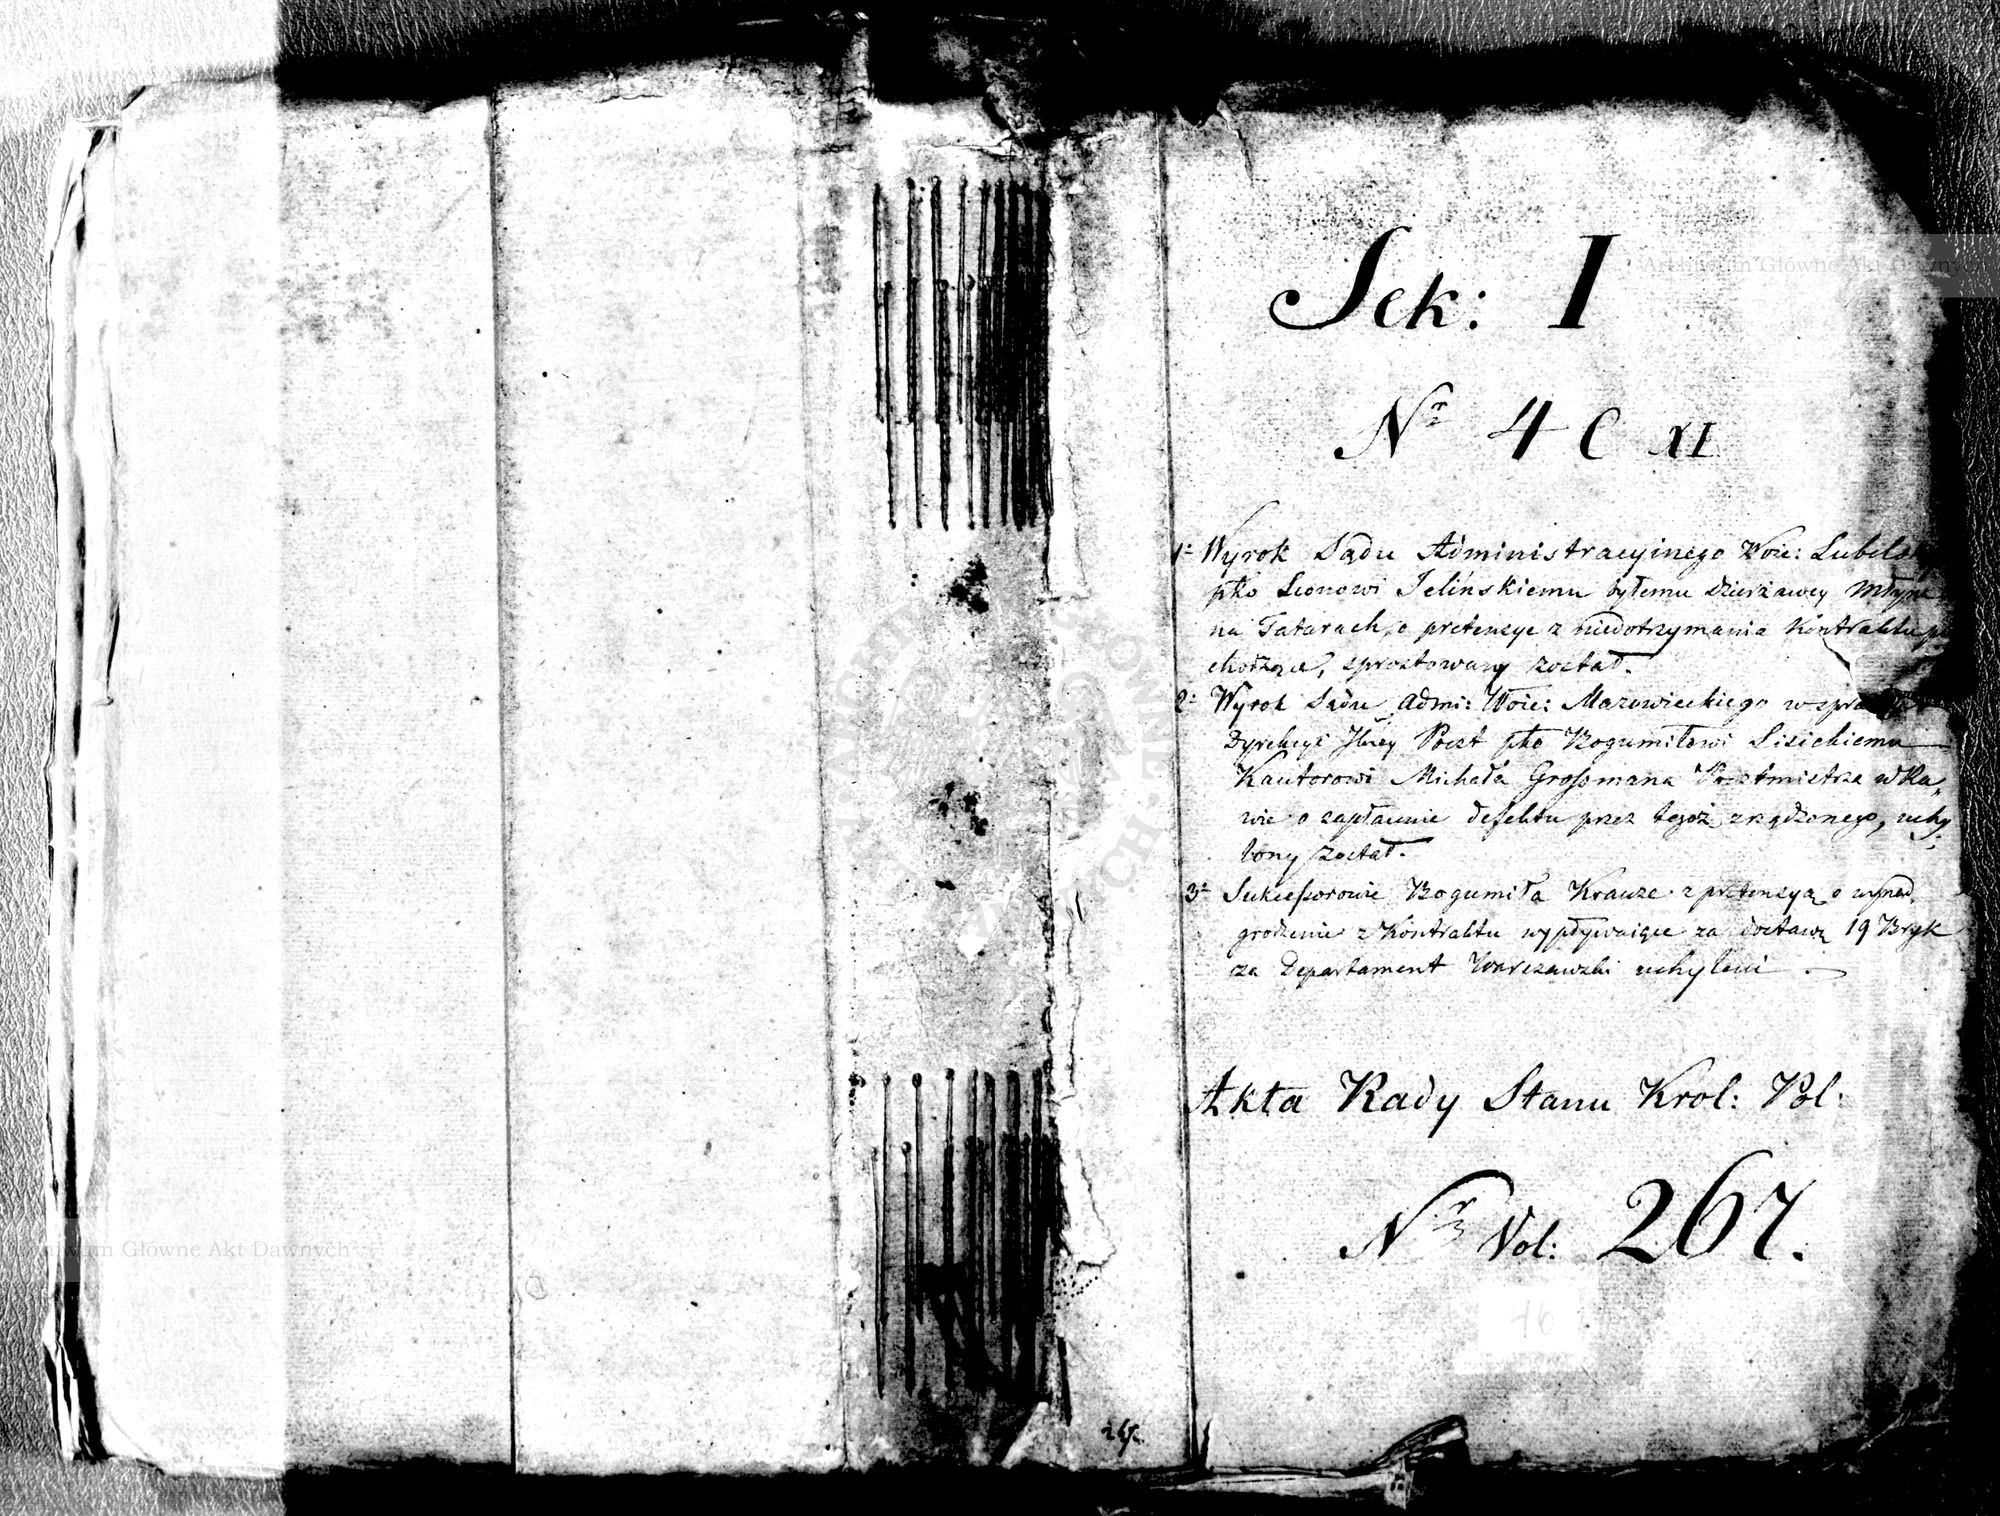 Sek: I
Nr 4 C XI
1= Wyrok Sądu Administracyinego Woie:
pko Leonowi Jelińskiemu byłemu dzierżawcy Młyna
na Tatarach, o pretensye z niedotrzymania Kontraktu
chodzące, sprostowany został.
2= Wyrok Sądu Admi: Woie: Mazowieckiego w
Dyrekcyi Poczt pko Bogumiłowi Lisickiemu
Kautorowi Michała Großmana Pocztmistrza w Ra,
wie o zapłacenie defektu przez tegoż zrządzonego, uchy,
lony został.
3= Sukceßorowie Bogumiła Krauze z pretensyą o wynad,
grodzenie z Kontraktu wypływaiące za dostawę 19 Bryk
za Departament Warszawski uchyleni.
Akta Rady Stanu Krol: Pol:
Nr Vol: 267.
46
267.
Archiwum Główne Akt Dawnych
Archiwum Główne Akt Dawnych